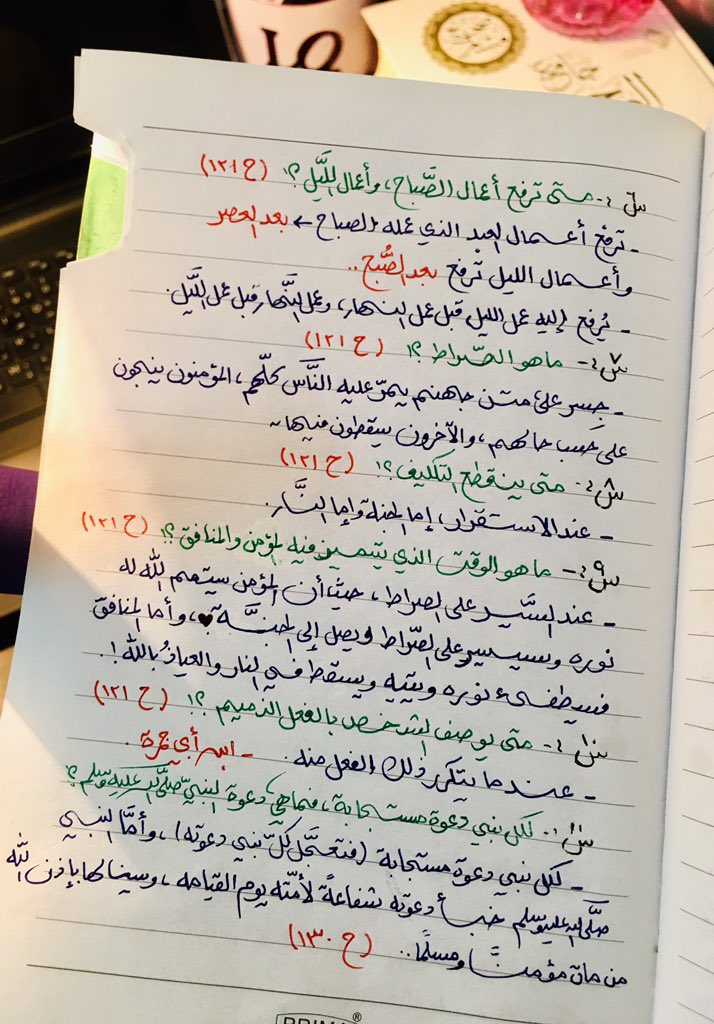 س٦:- متى ترفع أعمال الصَّباح، وأعمال اللَّيل؟! (ح ١٢١)
- ترفع أعمال العبد الذي عمله بالصباح ← بعد العصر
وأعمال الليل ترفع بعد الصُّبح..
- يُرفع إليه عمل الليل قبل عمل النهار، وعمل النَّهار قبل عمل اللَّيل.
س٧:- ماهو الصِّراط؟! (ح ١٢١)
- جِسر على متن جهنم يمرّ عليه النَّاس كلّهم، المؤمنون ينجون
على حسب حالهم، والآخرون يسقطون فيها..
س٨:- متى ينقطع التكليف؟! (ح ١٢١)
- عند الاستقرار، إما الجنة وإما النَّار.
س٩:- ماهو الوقت الذي يتميز فيه المؤمن والمنافق؟! (ح ١٢١)
- عند السَّير على الصراط، حيث أن المؤمن سيتمم الله له
نوره وسيسير على الصّراط ويصل إلى الجنَّة، وأما المنافق
فسيطفىء نوره ويتيه ويسقط في النار والعياذ بالله!.
س١٠:- متى يوصف الشخص بالفعل الذميم؟! (ح ١٢١)
- عندما يتكرر ذلك الفعل منه. - ابن أبي جمرة.
س١١:- لكل نبي دعوة مستجابة، فماهي دعوة النبيّ صلّى الله عليه وسلّم؟
- لكل نبي دعوة مستجابة (فتعجَّل كلّ نبي دعوته)، وأمَّا النبي
صلَّى الله عليه وسلم خبأ دعوته شفاعةً لأمّته يوم القيامه، وسينالها بإذن الله
من مات مؤمنًا ومسلمًا.. (ح ١٣٠)